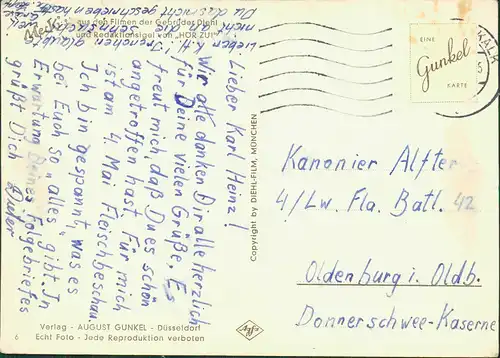 Mecki aus den Filmen der Gebrüder Diehl
und Redaktionsigel von „HÖR ZU!“
Lieber K.H.! Irenchen glaubt
mich, an den
Du das nicht geschrieben
Lieber Karl Heinz!
Wir alle danken Dir allerherzlich
für Deine vielen Grüße. Es
freut mich, daß Du es schön
angetroffen hast. Für mich
ist am 4. Mai Fleischbeschau
Ich bin gespannt, was es
bei Euch so „alles“ gibt. In
Erwartung Deines Folgebriefes
grüßt Dich
Copyright by DIEHL-FILM, MÜNCHEN
EINE
Gunkel
KARTE
Kanonier Alfter
4/Lw. Fla. Batl. 42
Oldenburg i. Oldb.
Donnerschwee-Kaserne
Verlag - AUGUST GUNKEL - Düsseldorf
6 Echt Foto - Jede Reproduktion verboten
Agfa